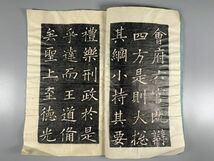 會府六官既辯
四方是則大總
其綱小持其要
禮樂刑政於是
乎達而王道備
矣聖上至德光